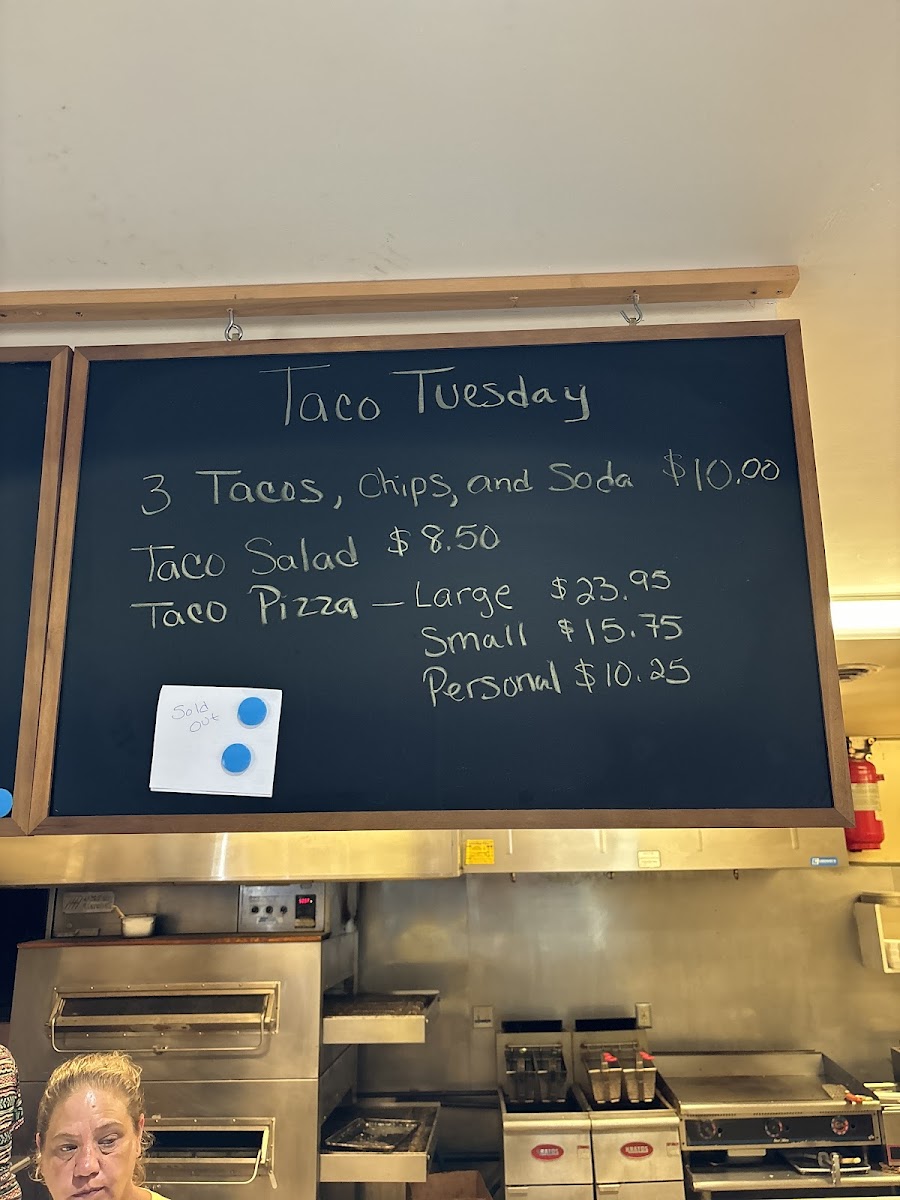 Taco Tuesday
3 Tacos, Chips, and Soda $10.00
Taco Salad $8.50
Taco Pizza — Large $23.95
Small $15.75
Personal $10.25
Sold
out